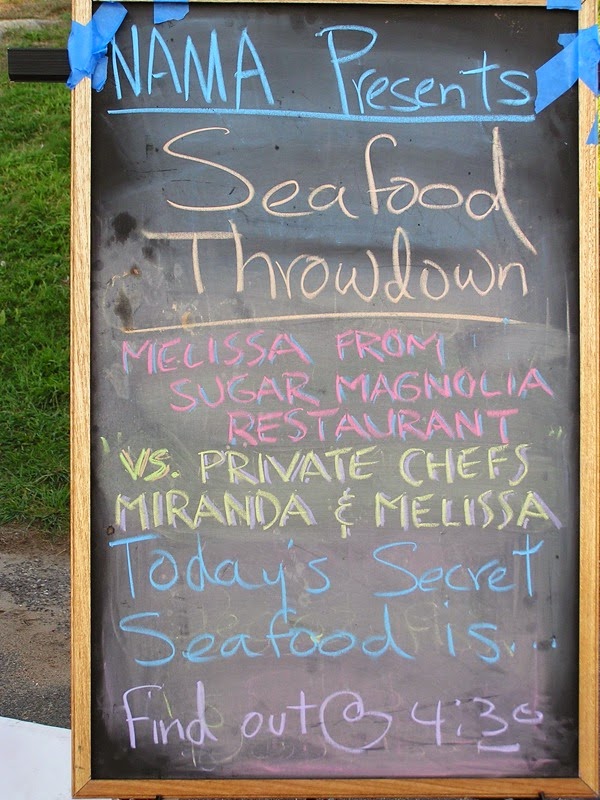 NAMA Presents
Seafood
Throwdown
MELISSA FROM
SUGAR MAGNOLIA
RESTAURANT
VS. PRIVATE CHEFS
MIRANDA & MELISSA
Today's Secret
Seafood is...
Find out @ 4:30